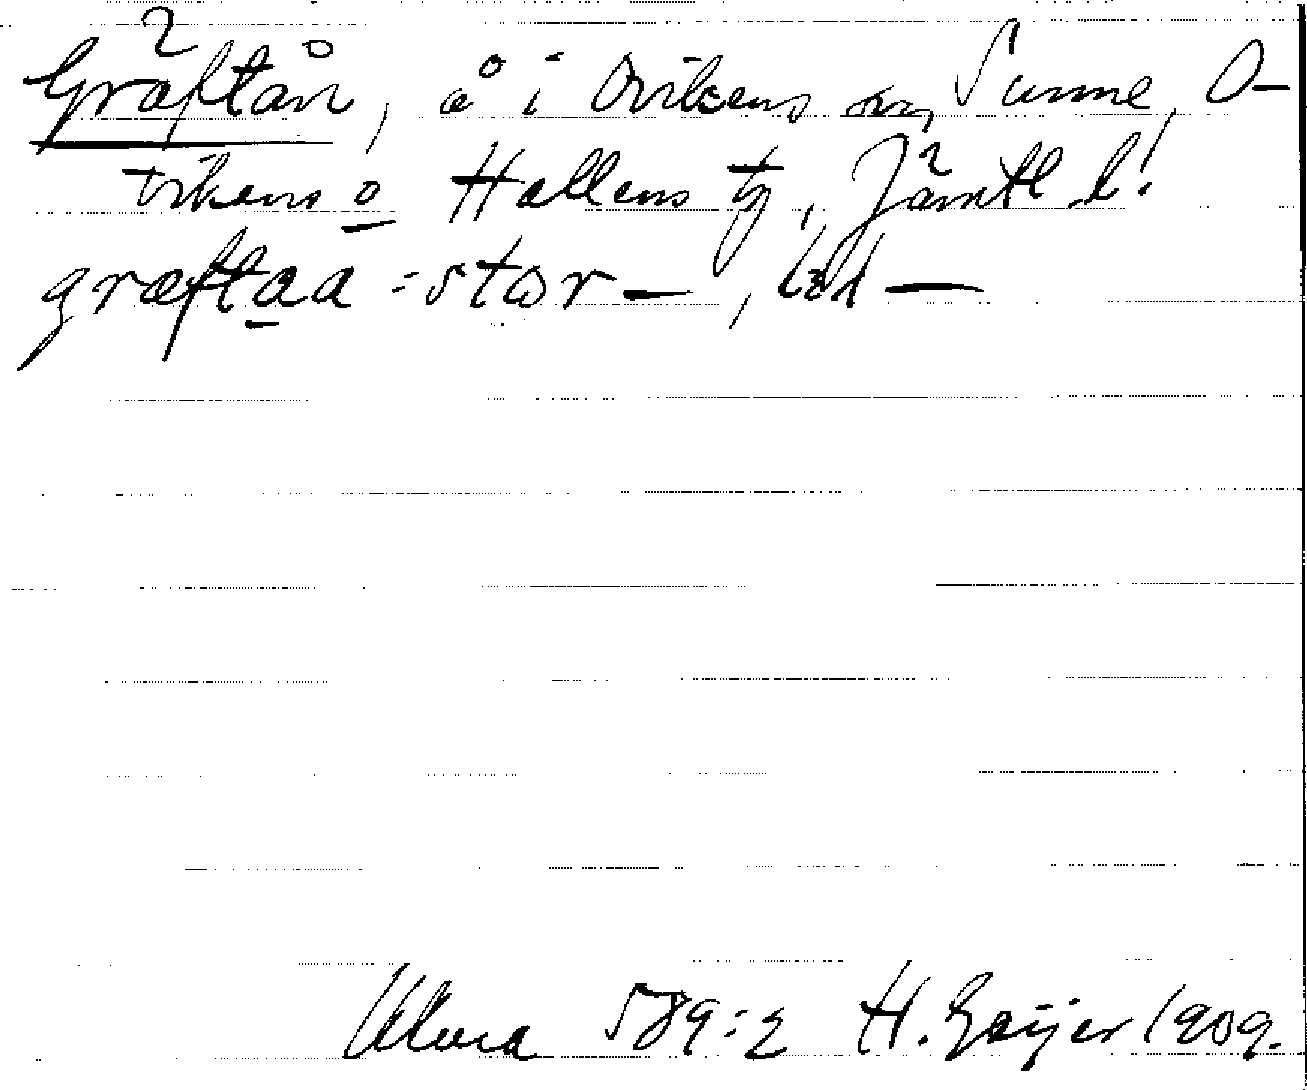 Gräftån, å i Ovikens sn, Sunne, O-
vikens o Hallens tg, Jämtl. l.
græftaa: stor –, lill –
Uluma 589:2 H. Geijer 1909.